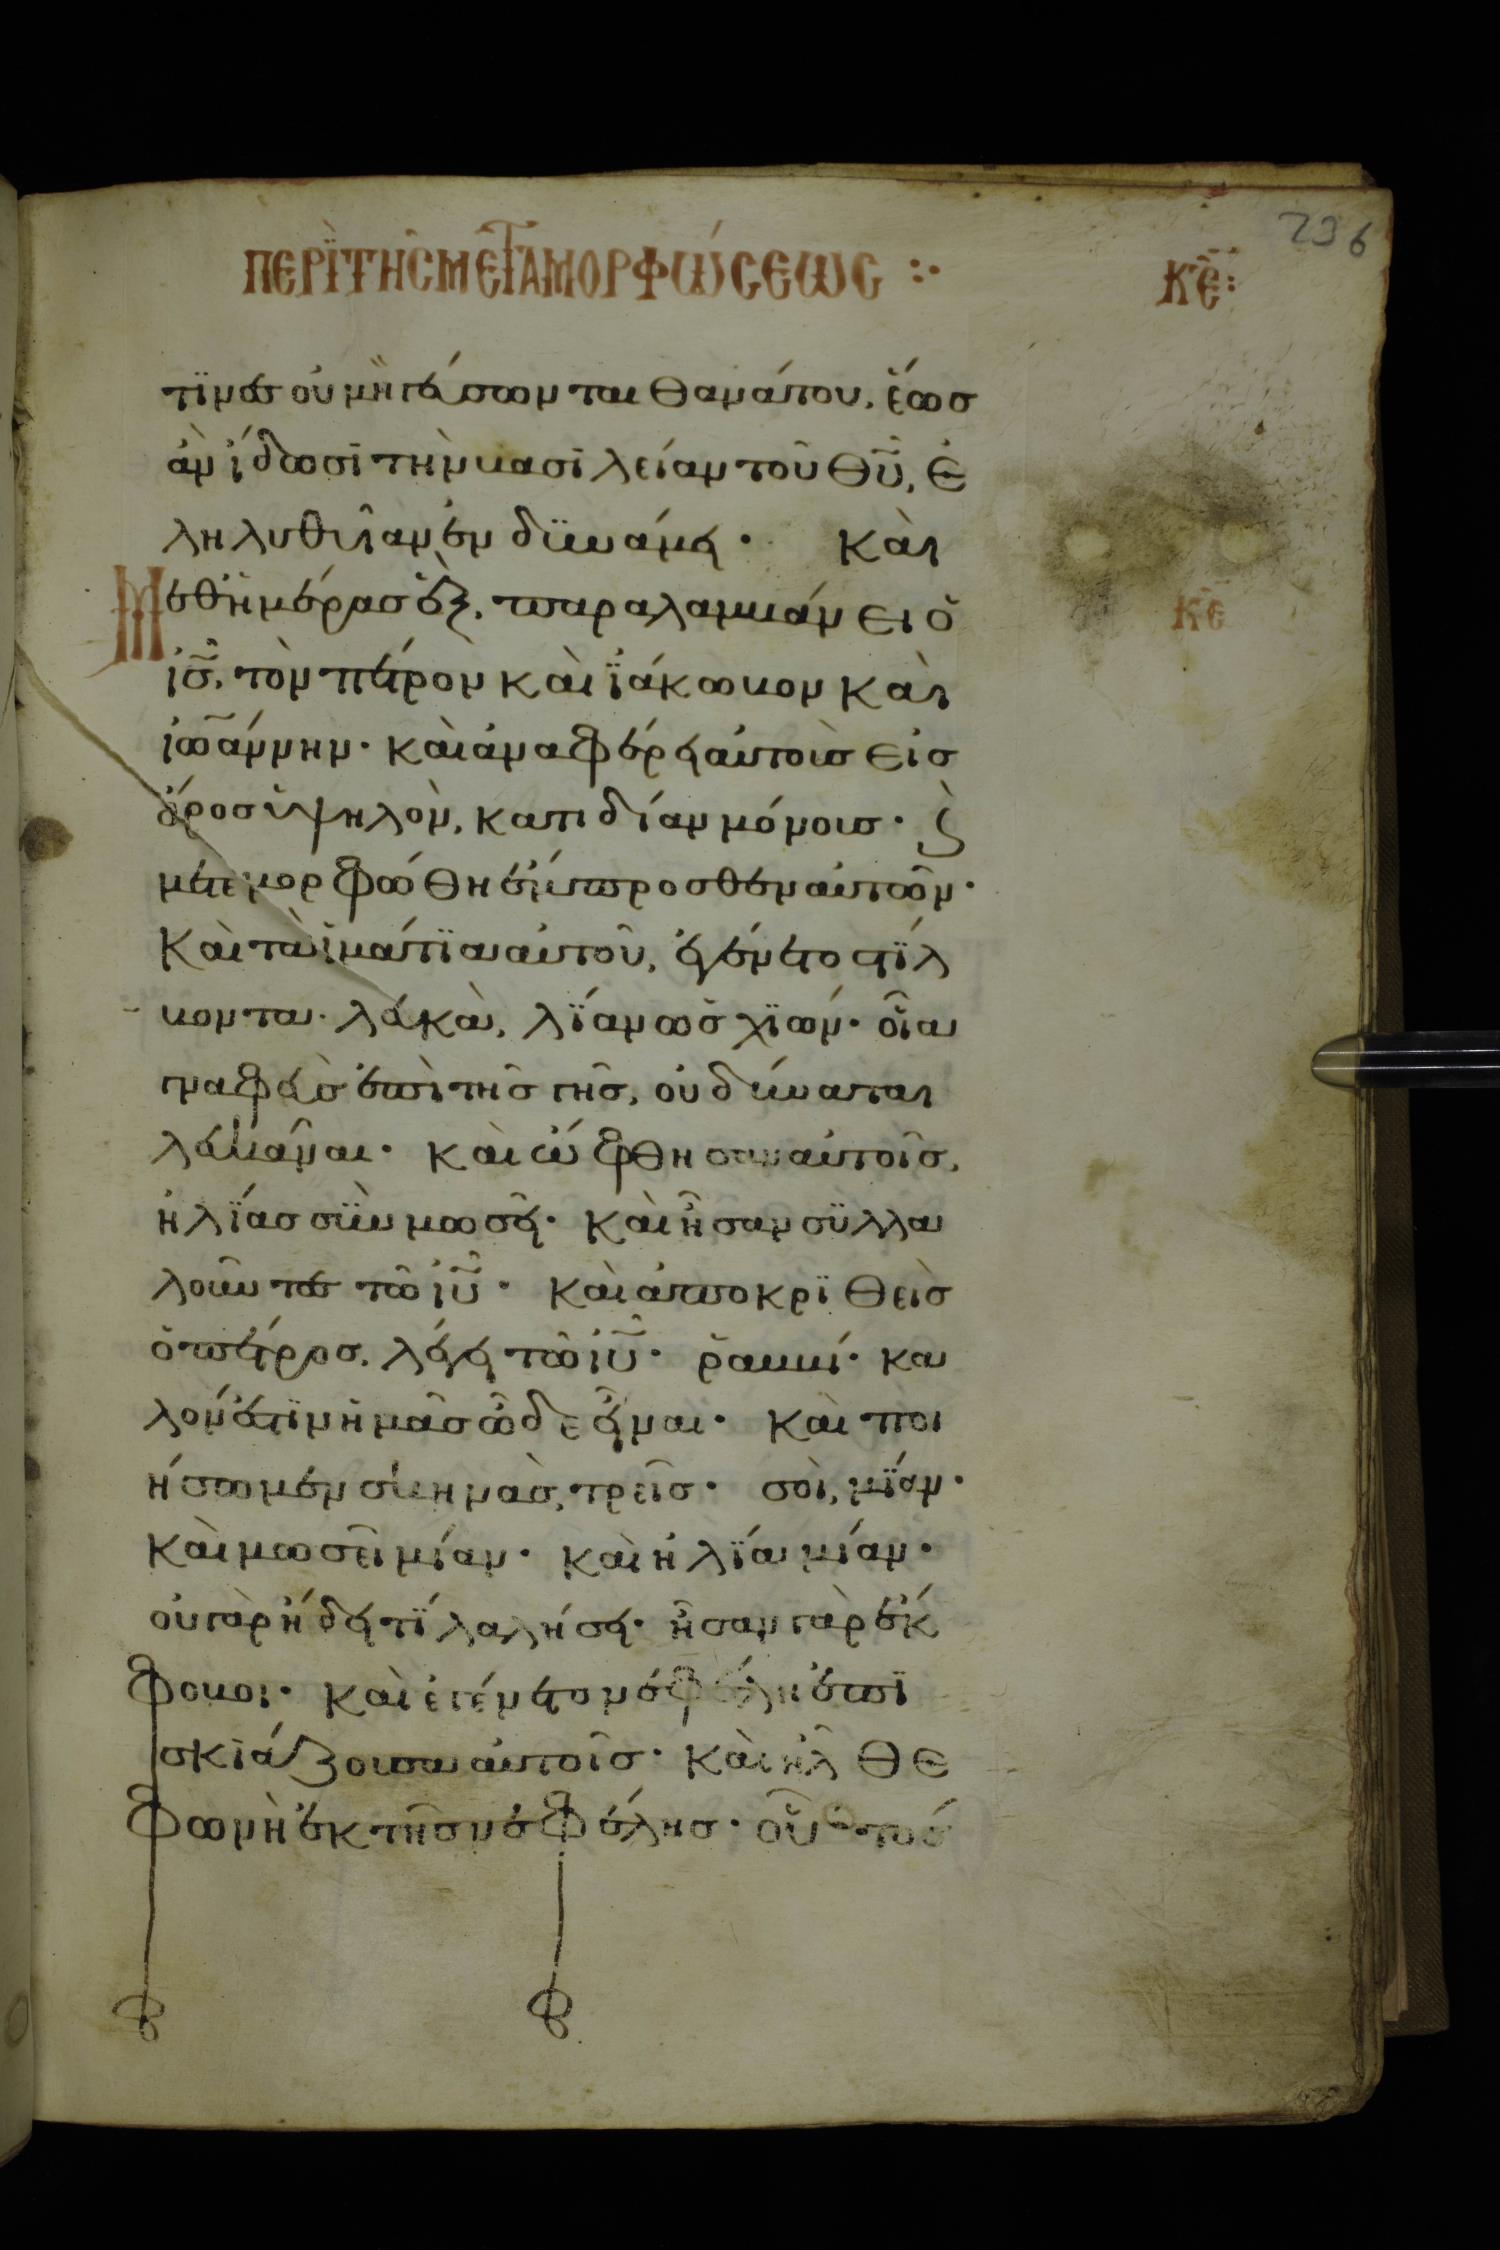 236
ΠΕΡῚ ΤΗ͂Σ ΜΕΤΑΜΟΡΦΏΣΕΩΣ
ΚΕ
τϊνὲσ οὐ μὴ γεύσωνται θανάτου, ἕωσ
ἂν ἴδωσϊ τὴν βασϊλείαν τοῦ Θ͞Υ, ἐ
ληλυθυῖαν ἐν δϋνάμει· Καὶ
Μεθ ἡμέρασ ἓξ, παραλαμβάνει ὁ
ἰ͞σ, τὸν πέτρον καὶ ἰάκωβον καὶ
ΚΕ
ἰω͞άννην· καὶ ἀναφέρει αὐτοὺσ εἰσ
ὄροσ ὑψηλὸν, κατιδίαν μόνουσ· ϗ
μετεμορφώθη ἔμπροσθεν αὐτῶν·
Καὶ τὰ ἱμάτϊα αὐτοῦ, ἐγένετο στίλ
βοντα· λευκὰ, λϊάν ὡσ χϊών· οἷα
γναφεὺσ ἐπὶ τῆσ γῆσ, οὐ δύναται
λευκᾶναι· καὶ ὤφθησαν αὐτοῖσ,
ἡλϊάσ σϋν μωσεῖ· καὶ ἦσαν σϋλλα
λοῦντεσ τῶ ἰ͞υ· καὶ ἀποκρϊθεὶσ
ὁ πέτροσ, λέγει τῶ ἰ͞υ· ῥαββί· κα
λόν ἐστϊν ἡμᾶσ ὧδε εἶναι· καὶ ποι
ήσωμεν σκηνὰσ, τρεῖσ· σοὶ, μϊάν·
καὶ μωσεῖ μίαν· καὶ ἡλϊα μίαν·
οὐ γὰρ ἤδει τϊ λαλήσει· ἦσαν γὰρ ἔκ
φοβοι· καὶ ἐγένετο νεφέλη ἐπϊ
σκϊάζουσα αὐτοῖσ· καὶ ἦλθε
φωνὴ ἐκ τῆσ νεφέλησ· οὗτόσ